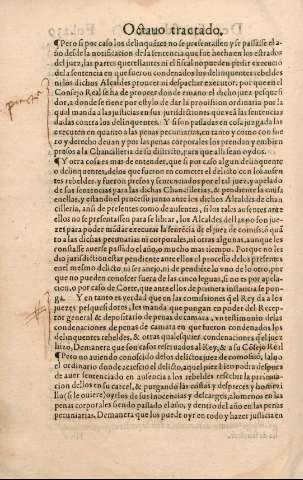 Octauo tractado.
¶ Pero si por caso los delinquẽtes no se presentassen y se passasse el a-
ño desde la notificacion de la sentencia que fue hecha en los estrados
del juez, las partes querellantes ni el fiscal no pueden pedir execuciõ
de la sentencia en que fueron condenados los delinquentes rebeldes
ni los dichos Alcaldes proueer ni despachar executor, por que en el
Consejo Real se ha de proueer donde emano el dicho juez pesquesi-
dor, a donde se tiene por estylo de dar la prouission ordinaria por la
qual manda a las justicias en sus jurisdictiones que las sentencias
dadas contra los delinquentes. Y si son passadas en cosa juzgada las
executen en quanto a las penas pecuniarias, en tanto y como con fue
ro y derecho deuan y por las penas corporales los prendan y embien
presos a la Chancilleria de su districto, para que alli sean oydos.
¶ Y otra cosa es mas de entender, que si por caso algun delinquente
o delinquentes, de los que fueron en cometer el delicto con los ausen
tes rebeldes, y fueron presos y sentenciados por el tal juez, y apelado
de sus sentencias para las dichas Chancillerias, &amp; pendiente la causa
en ellas, y estando el processo junto ante los dichos Alcaldes de chan
cilleria, ansi de presentes como de ausentes, si los tales ausentes ante
ellos no se presentassen para se librar, los Alcaldes
ran a las dichas penas pecuniarias corporales, ni otras algunas, aunque les
conste auerse passado el año, o mucho mas tiempo. Porque no les
dio jurisdiction estar pendiente ante ellos el processo delos presentes
en el mesmo delicto, ni ser anejo, ni de pendiente lo vno de lo otro, por
que no pueden conoscer fuera de las cinco leguas, si no es por apela-
cion, o por caso de Corte, que ante ellos de primera instancia se pon-
ga. Y en tanto es verdad que en las comissiones q̃ el Rey da a los
juezes pesquesidores, les manda que pongan en poder del Recep-
tor general &amp; depositario de penas de camara, vn testimonio de las
condenaciones de penas de camara en que fueron condenados los
delinquentes rebeldes, &amp; otras qualesquier condenaciones q̃ el juez
hizo, Demanera que son casos reseruados al Rey, &amp; a su Cõsejo Real
¶ Pero no auiendo conoscido delos delictos juez de comissiõ, sino
el ordinario donde acaescio el delicto, aquel juez bien podra despues
de auer sentenciado en ausencia a los rebeldes rescebir la presenta
cion dellos en su carcel, &amp; purgando las costas y despreces y homezi
llo (si le ouiere) oyrlos de sus inocencias y descargos, alomenos en las
penas corporales siendo passado el año, y dentro del año en las penas
pecuniarias. Demanera que los puede oyr en todo y hazer justicia en